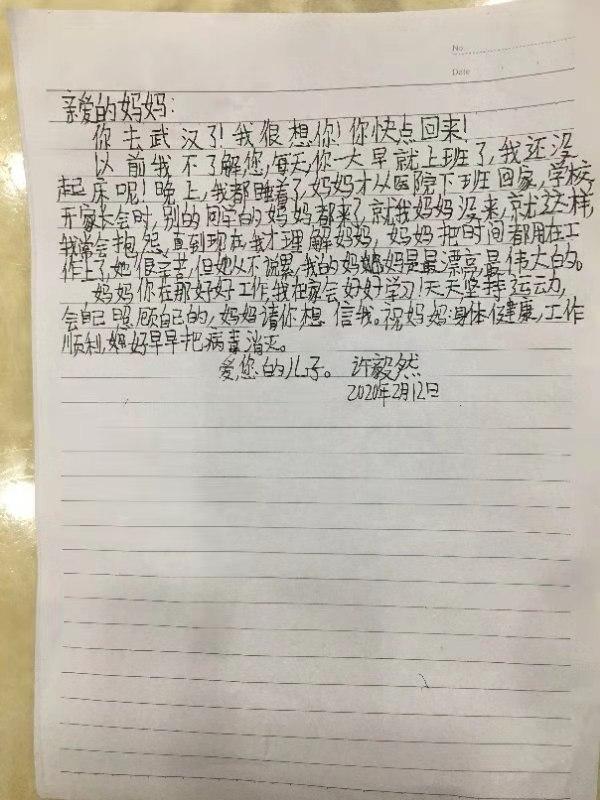 No.
Date
亲爱的妈妈：
你去武汉了！我很想你！你快点回来！
以前我不了解您，每天，你一大早就上班了，我还没
起床呢！晚上，我都睡着了，妈妈才从医院下班回家，学校，
开家长会时，别的同学的妈妈都来了，就我妈妈没来，就这样，
我常会抱怨，直到现在，我才理解妈妈，妈妈把时间都用在工
作上了，她很辛苦，但她从不说累，我的妈妈是最漂亮，最伟大的。
妈妈你在那好好工作，我在家会好好学习！天天坚持运动，
会自己照顾自己的，妈妈请你想信我。祝妈妈：身体健康，工作
顺利，好早早把病毒消灭。
爱您的儿子。 许毅然
2020年2月12日